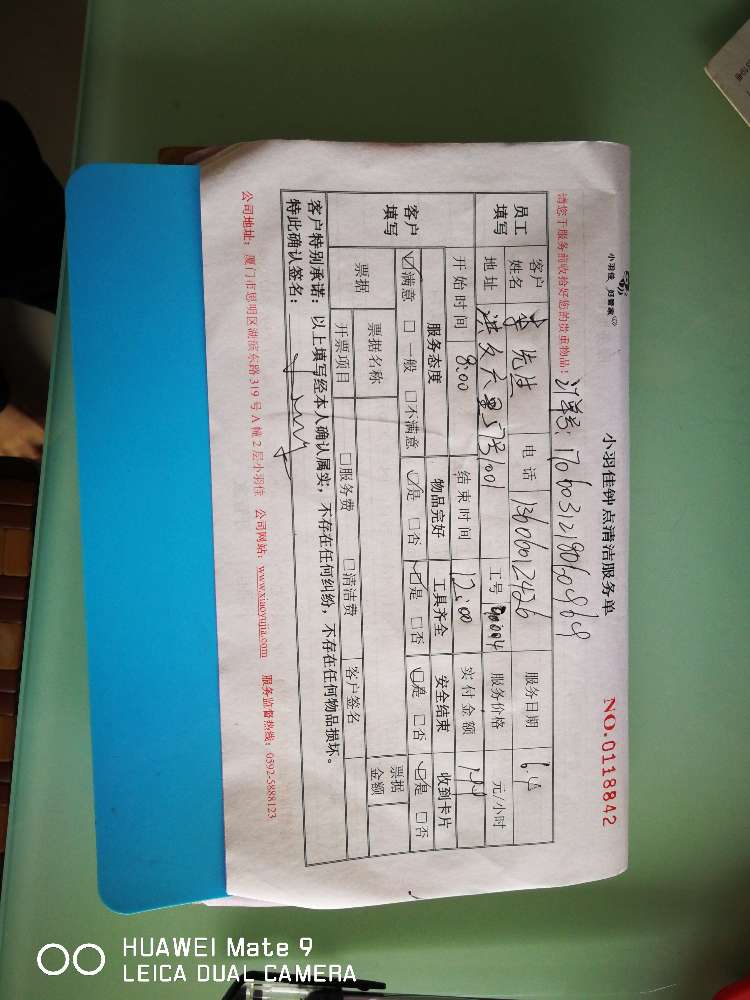 小羽佳 好管家
小羽佳钟点清洁服务单
NO.0118842
请您于服务前收拾好您的贵重物品！
订单号: 
员工填写
客户姓名 先生 电话 13606012426 服务日期 6.4
地址 工号 服务价格 元/小时
开始时间 8:00 结束时间 12:00 实付金额
客户填写
服务态度 物品完好 工具齐全 安全结束 收到卡片
☑满意 □一般 □不满意 ☑是 □否 ☑是 □否 ☑是 □否 ☑是 □否
票据 票据名称 票据金额
开票项目 □服务费 □清洁费 客户签名
客户特别承诺：以上填写经本人确认属实，不存在任何纠纷，不存在任何物品损坏。
特此确认签名：
公司地址：厦门市思明区湖滨东路319号A幢2层小羽佳 公司网站：www.xiaoyujia.com 服务监督热线：0592-5888123
HUAWEI Mate 9
LEICA DUAL CAMERA